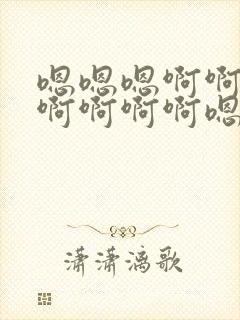 嗯嗯嗯啊啊
啊啊啊啊嗯
潇潇漓歌